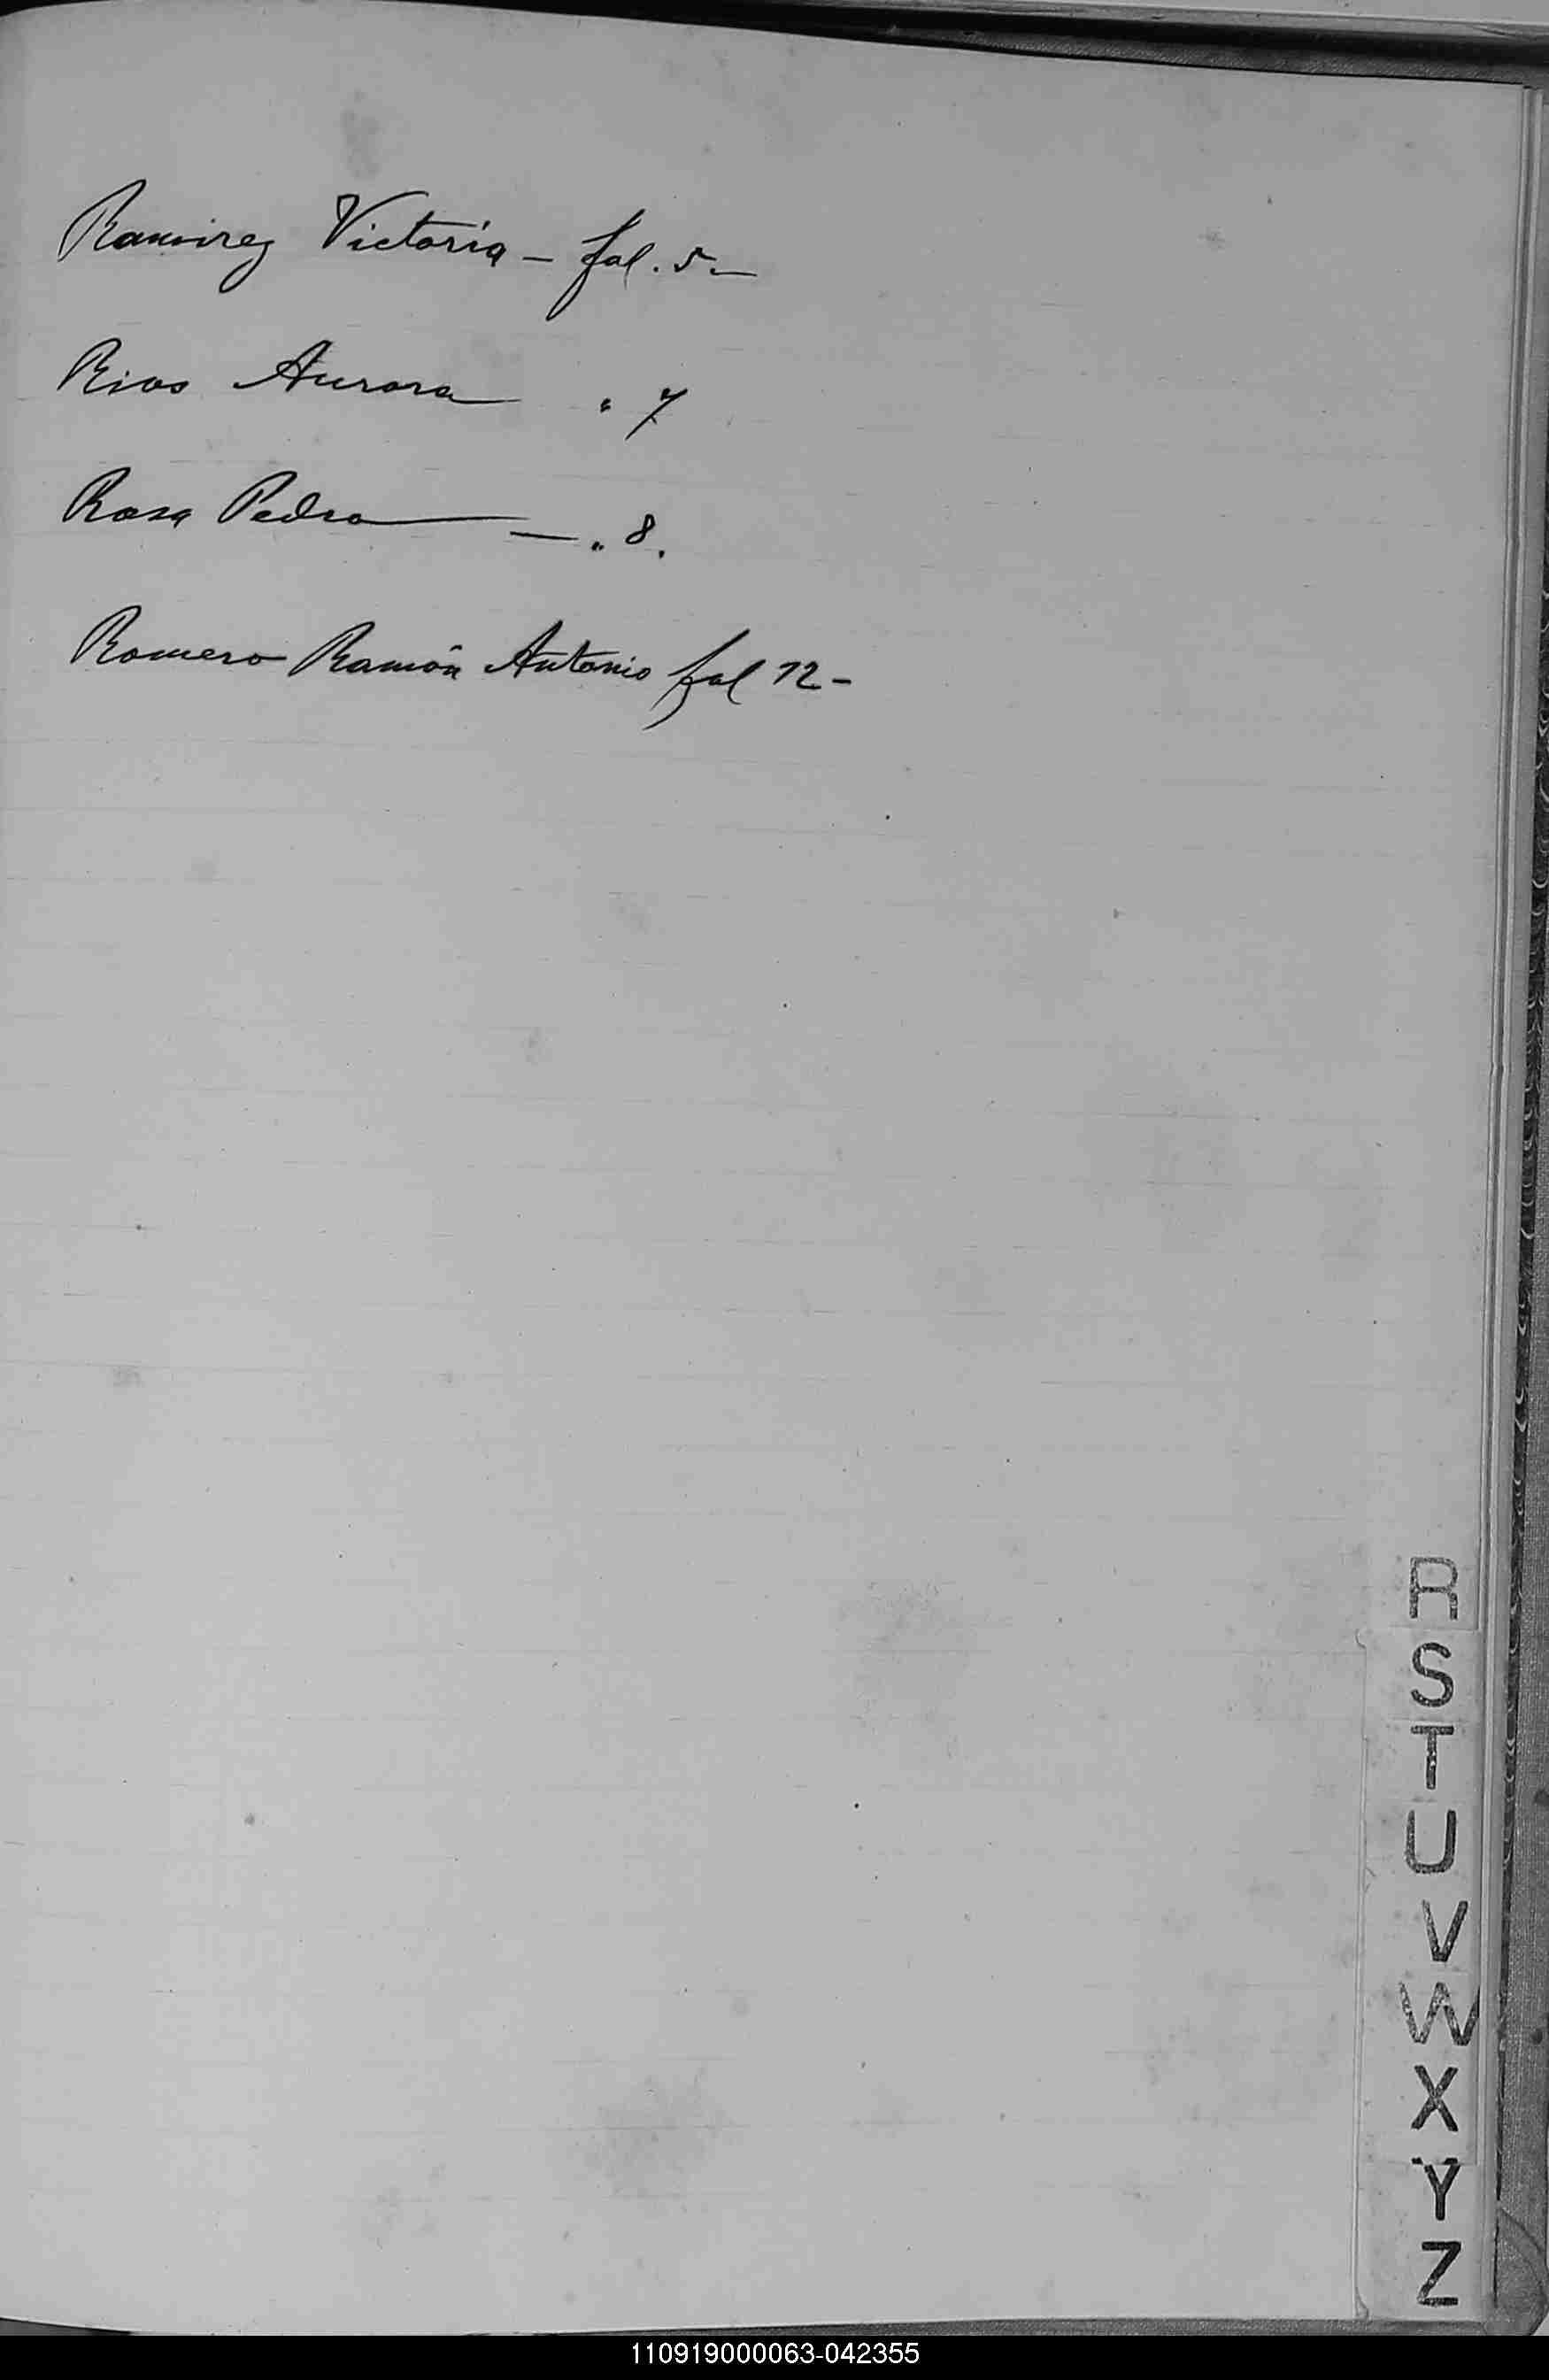 Ramirez Victoria - fol. 5 -
Rios Aurora " 7
Rosa Pedro — " 8.
Romero Ramón Antonio fol 12 -
R
S
T
U
V
W
X
Y
Z
110919000063-042355